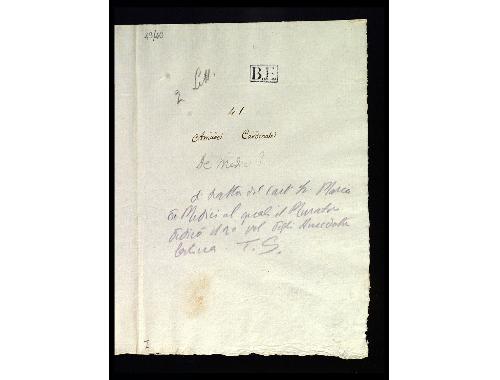 49/40
2 Lett.
B.E.
41
Amicisi Cardinalis
De Medici ?
Si tratta del Card. Marco
De Medici al quale il Muratori
dedicò il 2o vol. degli Anecdota
latina. T. S.
I